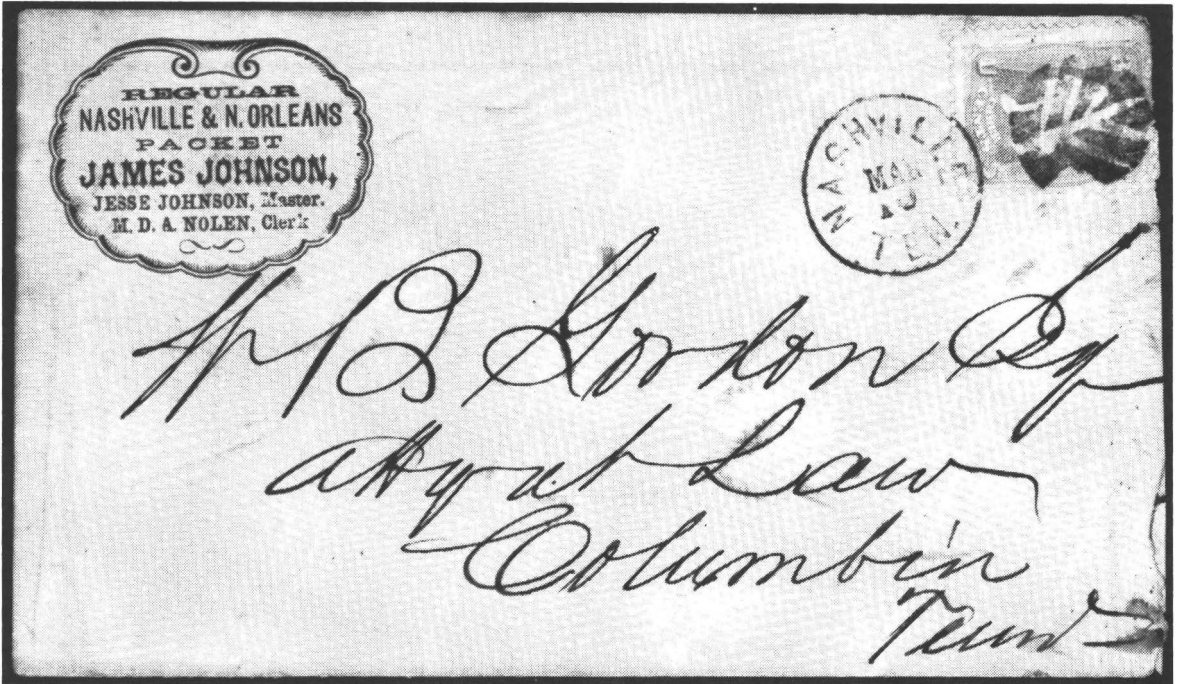 REGULAR
NASHVILLE & N. ORLEANS
PACKET
JAMES JOHNSON,
JESSE JOHNSON, Master.
M. D. A. NOLEN, Clerk
NASHVILLE
MAR
TEN.
W B Gordon Esq
atty at Law
Columbia
Tenn